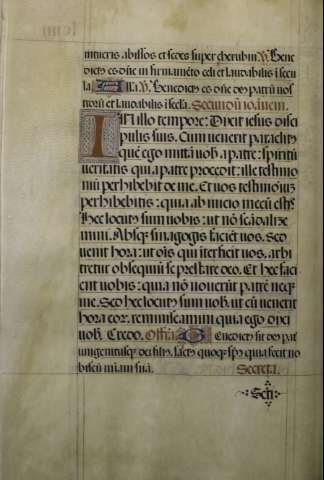 intueris abissos et sedes super cherubin. V. Bene
dictus es dñe in firmamēto celi et laudabilis i secu
la. Alla. V. Benedictus es dñe deus patrū nos
trorū et laudabilis i secla. Secundū ioannem.
In illo tempore: Dixit iesus disci
pulis suis. Cum uenerit paraclitꝰ
quē ego mittā uob a patre: spiritū
ueritatis qui a patre procedit: ille testimo
niū perhibebit de me. Et uos testimoniū
perhibebitis: quia ab inicio mecū estis
Hec locutus sum uobis: ut nō scādalize
mini. Absqꝫ sinagogis faciēt uos. Sed
uenit hora: ut oīs qui īterficit uos, arbi
tretur obsequiū se prestare deo. Et hec faci
ent uobis: quia nō nouerūt patrē neqꝫ
me. Sed hec locutus sum uob. ut cū uenerit
hora eor. reminiscamini quia ego dixi
uob. Credo. Offitā Benedictus sit deus pat
unigenitusqꝫ dei filiꝰ, sāctꝰ quoqꝫ spūs quia fecit no
biscū miam suā. Secreta.
Scti